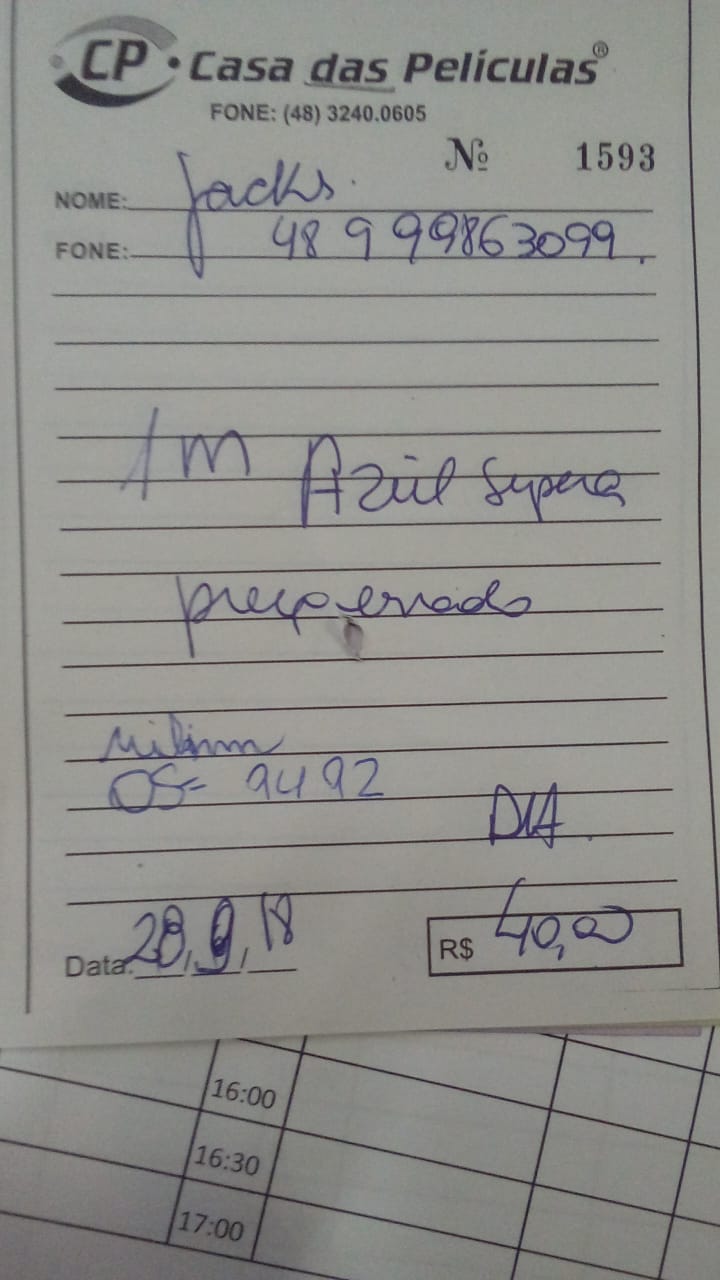 CP • Casa das Películas®
FONE: (48) 3240.0605
Nº 1593
NOME: Jacks.
FONE: 48 9 99863099.
1 m Azul Supera
DIA
OS- 9492
Data: 28, 9, 18
R$ 40,00
16:00
16:30
17:00